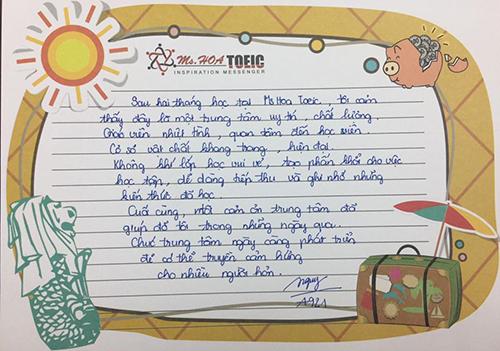 Ms. HOA TOEIC
INSPIRATION MESSENGER
Sau hai tháng học tại Ms Hoa Toeic, tôi cảm
thấy đây là một trung tâm uy tín, chất lượng.
Giáo viên nhiệt tình, quan tâm đến học viên.
Cơ sở vật chất khang trang, hiện đại.
Không khí lớp học vui vẻ, tạo phấn khởi cho việc
học tập, dễ dàng tiếp thu và ghi nhớ những
kiến thức đã học.
Cuối cùng, cảm ơn trung tâm đã
giúp đỡ tôi trong những ngày qua.
Chúc trung tâm ngày càng phát triển
để có thể truyền cảm hứng
cho nhiều người hơn.